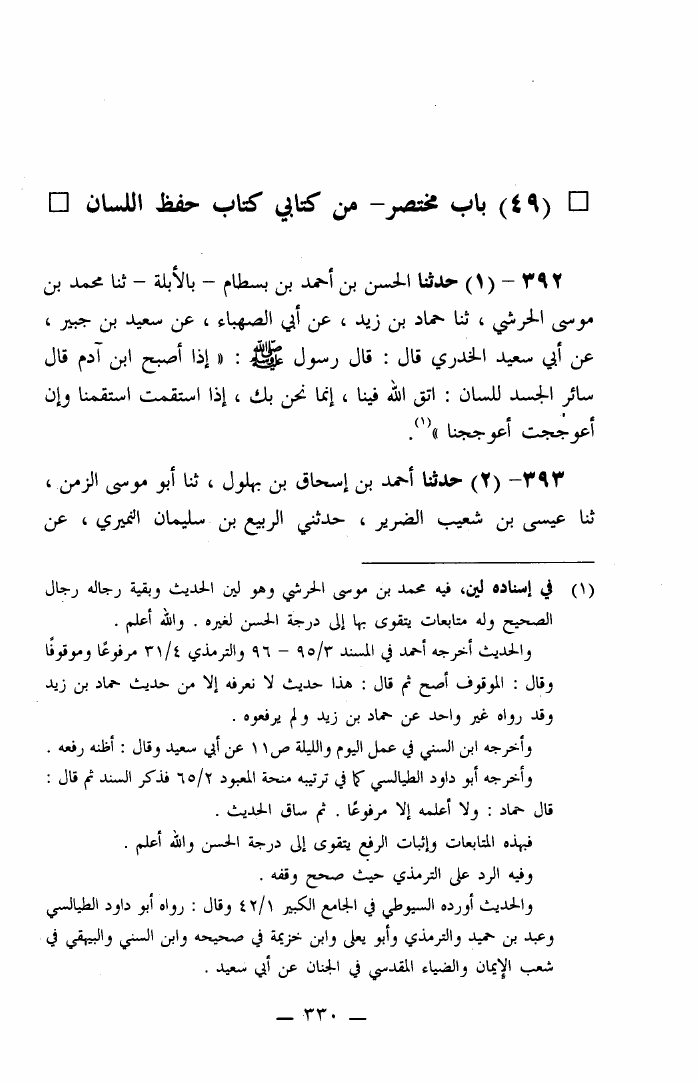 □ (٤٩) باب مختصر- من كتابي كتاب حفظ اللسان □
٣٩٢ - (١) حدثنا الحسن بن أحمد بن بسطام - بالأبلة - ثنا محمد بن
موسى الحرشي ، ثنا حماد بن زيد ، عن أبي الصهباء ، عن سعيد بن جبير ،
عن أبي سعيد الخدري قال : قال رسول ﷺ : « إذا أصبح ابن آدم قال
سائر الجسد للسان : اتق الله فينا ، إنما نحن بك ، إذا استقمت استقمنا وإن
أعوجُجت أعوججنا »(١).
٣٩٣- (٢) حدثنا أحمد بن إسحاق بن بهلول ، ثنا أبو موسى الزمن ،
ثنا عيسى بن شعيب الضرير ، حدثني الربيع بن سليمان النميري ، عن
(١) في إسناده لين، فيه محمد بن موسى الحرشي وهو لين الحديث وبقية رجاله رجال
الصحيح وله متابعات يتقوى بها إلى درجة الحسن لغيره . والله أعلم .
والحديث أخرجه أحمد في المسند ٩٥/٣ - ٩٦ والترمذي ٣١/٤ مرفوعًا وموقوفًا
وقال : الموقوف أصح ثم قال : هذا حديث لا نعرفه إلا من حديث حماد بن زيد
وقد رواه غير واحد عن حماد بن زيد ولم يرفعوه .
وأخرجه ابن السني في عمل اليوم والليلة ص١١ عن أبي سعيد وقال : أظنه رفعه .
وأخرجه أبو داود الطيالسي كما في ترتيبه منحة المعبود ٦٥/٢ فذكر السند ثم قال :
قال حماد : ولا أعلمه إلا مرفوعًا . ثم ساق الحديث .
فبهذه المتابعات وإثبات الرفع يتقوى إلى درجة الحسن والله أعلم .
وفيه الرد على الترمذي حيث صحح وقفه .
والحديث أورده السيوطي في الجامع الكبير ٤٢/١ وقال : رواه أبو داود الطيالسي
وعبد بن حميد والترمذي وأبو يعلى وابن خزيمة في صحيحه وابن السني والبيهقي في
شعب الإيمان والضياء المقدسي في الجنان عن أبي سعيد .
— ٣٣٠ —